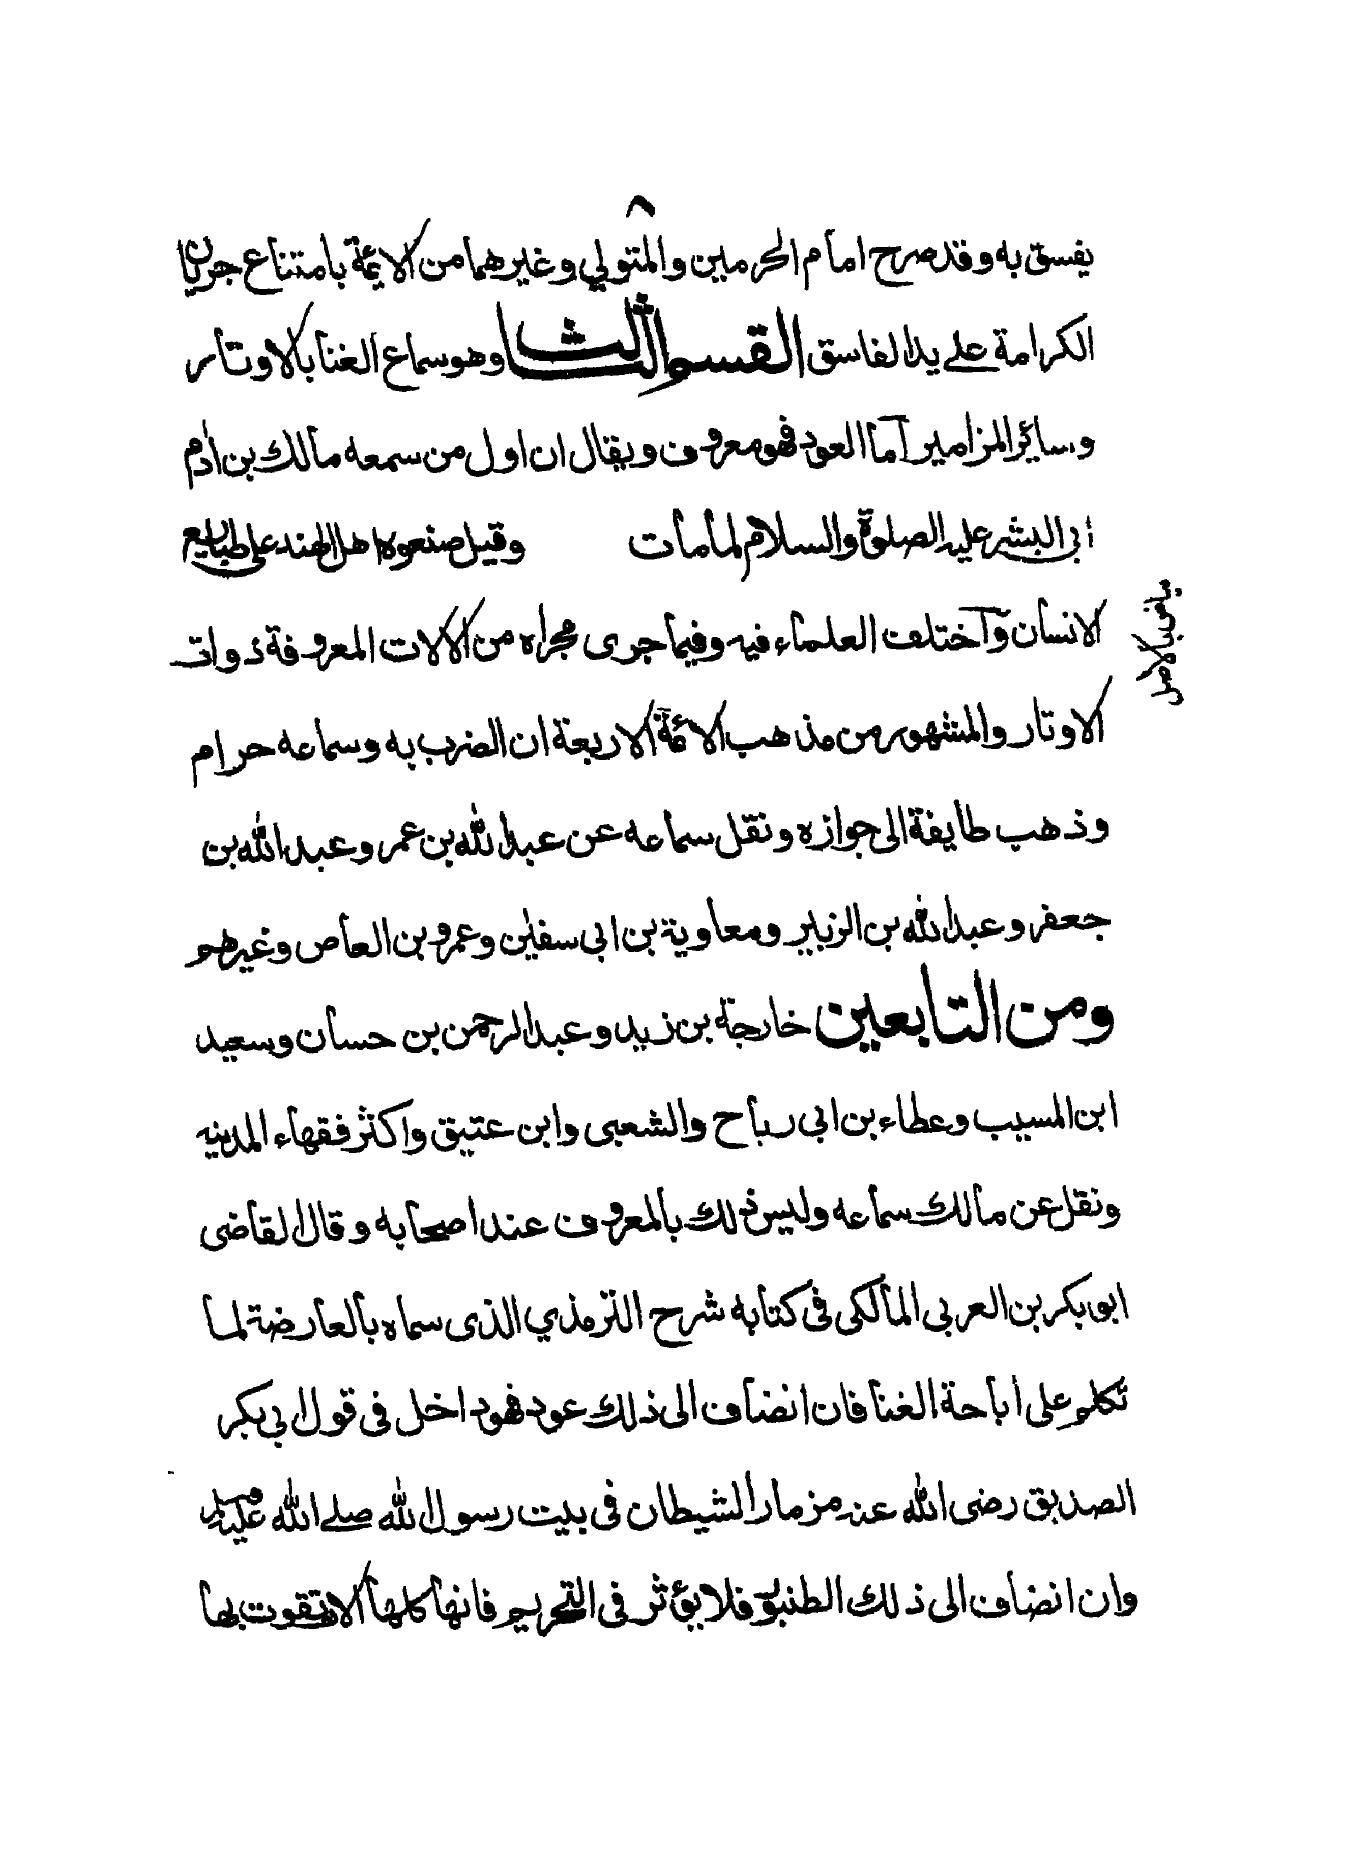 ٨
يفسق به وقد صرح امام الحرمين والمتولي وغيرهما من الائمة بامتناع جريان
الكرامة علي يد الفاسق القسم الثالث وهو سماع الغنا بالاوتار
وسائر المزامير أما العود فهو معروف ويقال ان اول من سمعه مالك بن ادم
ابى البشر عليه الصلوة والسلام لما مات وقيل صنعوه اهل الهند على طبايع
الانسان وآختلف العلماء فيه وفيما جرى مجراه من الالات المعروفة ذوات
بياض بالاصل
الاوتار والمشهور من مذهب الائمة الاربعة ان الضرب به وسماعه حرام
وذهب طايفة الى جوازه ونقل سماعه عن عبد الله بن عمر وعبد الله بن
جعفر وعبد الله بن الزبير ومعاوية بن ابى سفين وعمرو بن العاص وغيرهم
ومن التابعين خارجة بن زيد وعبد الرحمن بن حسان وسعيد
ابن المسيب وعطاء بن ابى رباح والشعبى وابن عتيق واكثر فقهاء المدينه
ونقل عن مالك سماعه وليس ذلك بالمعروف عند اصحابه وقال القاضى
ابو بكر بن العربى المالكى فى كتابه شرح الترمذي الذى سماه بالعارضة لما
تكلم على اباحة الغنا فان انضاف الى ذلك عود فهو داخل فى قول ابى بكر
الصديق رضى الله عنه مزمار الشيطان فى بيت رسول الله صلے الله عليه وسلم
وان انضاف الى ذلك الطنبور فلا يؤثر فى التحريم فانها كلها الات تقوت بها